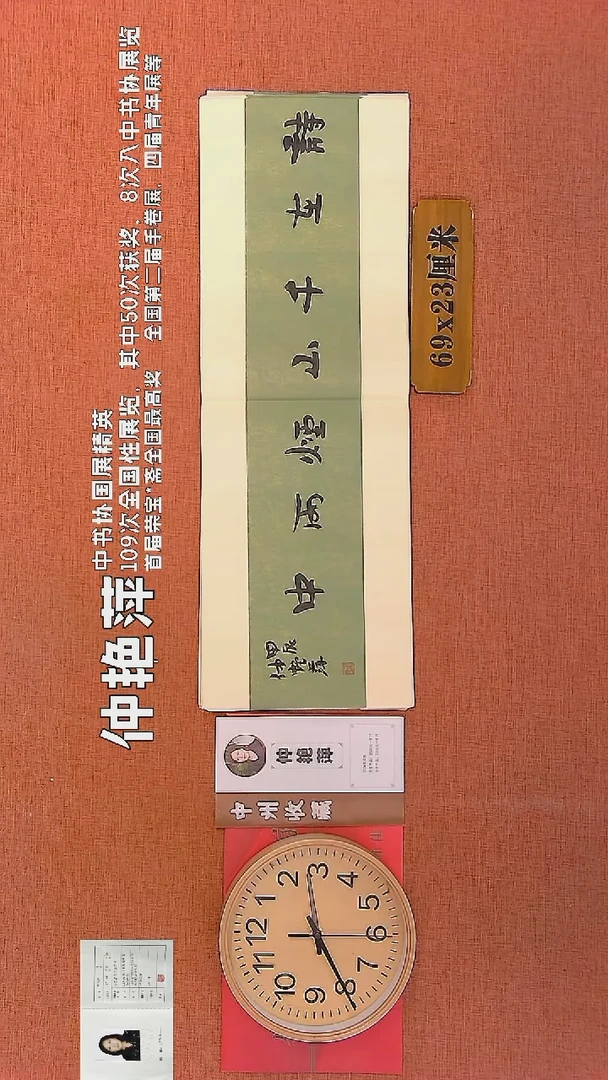 仲艳萍
中书协国展精英
109次全国性展览，其中50次获奖、8次入中书协展览
首届荣宝斋全国最高奖 全国第二届手卷展、四届青年展等
詩在千山煙雨中
甲辰
仲艳萍
69x23厘米
仲艳萍
中州收藏
12
1
2
3
4
5
6
7
8
9
10
11